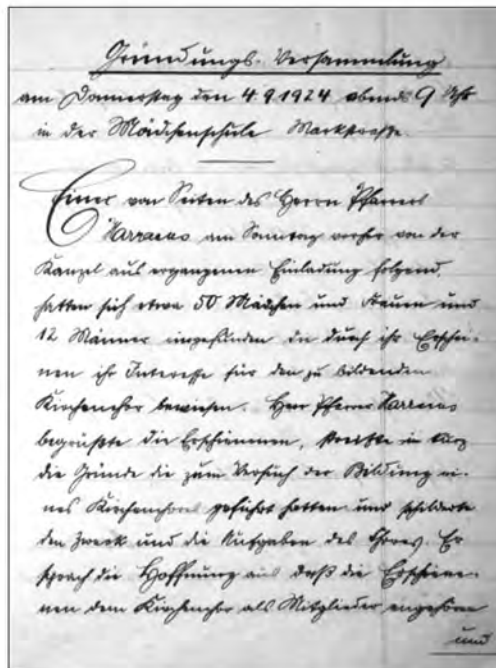 Gründungs-Versammlung
am Donnerstag den 4.9.1924 abends 9 Uhr
in der Mädchenschule Marktstrasse.
Einer von Seiten des Herrn Pfarrers
Harraeus am Sonntag vorher von der
Kanzel aus ergangenen Einladung folgend,
hatten sich etwa 50 Mädchen und Frauen und
12 Männer eingefunden die durch ihr Erschei-
nen ihr Interesse für den zu bildenden
Kirchenchor bewiesen. Herr Pfarrer Harraeus
begrüßte die Erschienenen, streifte in kurz
die Gründe die zum Versuch der Bildung ei-
nes Kirchenchores geführt hatten und schilderte
den Zweck und die Aufgaben des Chores. Er
sprach die Hoffnung aus daß die Erschiene-
nen dem Kirchenchor als Mitglieder angehören
und